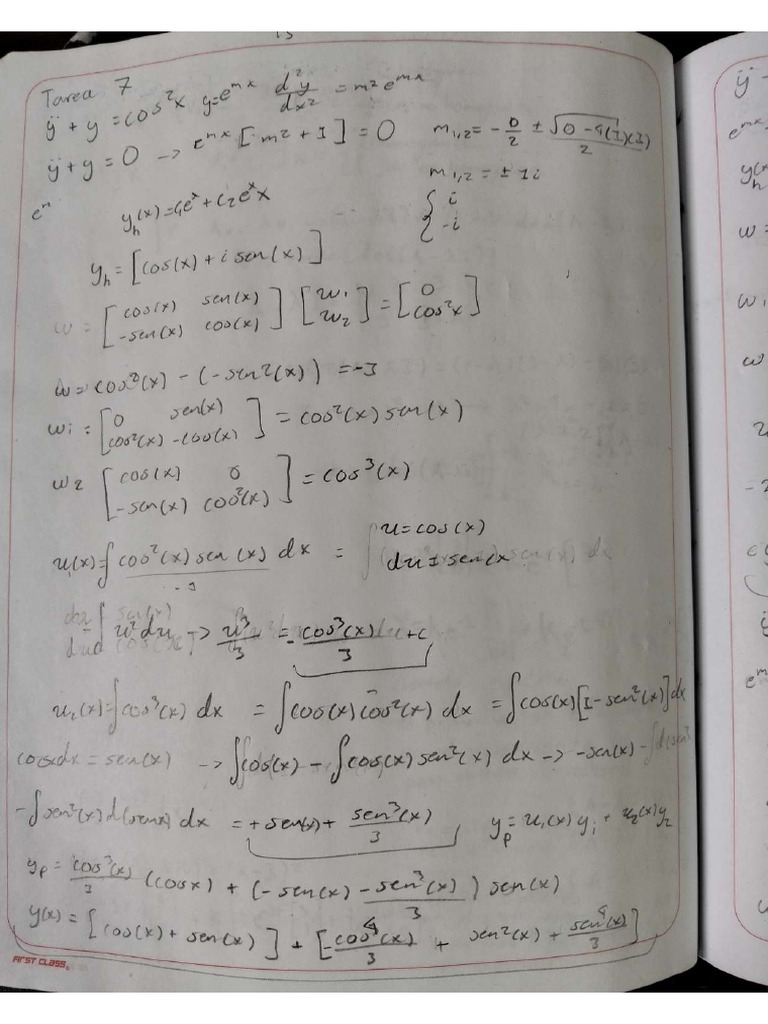 Tarea 7
ÿ + y = cos²x   y = e^{mx}   d²y/dx² = m² e^{mx}
ÿ + y = 0 → e^{mx} [m² + 1] = 0   m₁,₂ = -0/2 ± √(0 - 4(1)(1))/2
m₁,₂ = ± 1i
eⁿ   y_h(x) = C₁eˣ + C₂eˣx   { i
-i
y_h = [cos(x) + i sen(x)]
w = [cos(x) sen(x)] [w₁] = [0]
[-sen(x) cos(x)] [w₂] [cos²x]
w = cos²(x) - (-sen²(x)) = -1
w₁ = [0 sen(x)] = cos²(x) sen(x)
[cos²(x) -cos(x)]
w₂ [cos(x) 0] = cos³(x)
[-sen(x) cos²(x)]
u₁(x) = ∫ cos²(x) sen(x)/-1 dx =   u = cos(x)
du = sen(x
∫ u² du → u³/3 = -cos³(x)/3 + c
u₂(x) = ∫cos³(x) dx = ∫cos(x) cos²(x) dx = ∫cos(x)[1 - sen²(x)]dx
cosxdx = sen(x) → ∫cos(x) - ∫cos(x) sen²(x) dx → -sen(x) -
-∫sen²(x) d(senx) dx = + sen(x) + sen³(x)/3   y_p = u₁(x) y₁ + u₂(x) y₂
y_p = cos³(x)/3 (cosx) + (-sen(x) - sen³(x)/3) sen(x)
y(x) = [cos(x) + sen(x)] + [-cos⁴(x)/3 + sen²(x) + sen⁴(x)/3]
FIRST CLASS